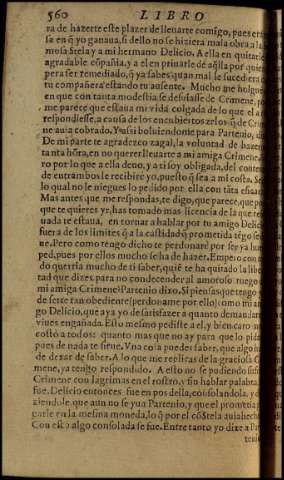 560 LIBRO
ra de hazerte este plazer de lleuarte comigo, pues
sa en q̃ yo ganaua, si dello no se hiziera mala obra a la
mosa Stela y a mi hermano Delicio. A ella en quitarle
agradable cõpañia, y a el en priuarle dẽ aq̃lla por quien
pera ser remediado, q̃ ya sabes quan mal le sucederia
tu compañera estando tu ausente. Mucho me holgue
en que con tanta modestia se desistasse de Crimene, por
me parece que estaua mi vida colgada de lo que el
respondiesse, a causa de los encubiertos zelos q̃ de Crime
ne auia cobrado. Y assi boluiendome para Partenio,
De mi parte te agradezco zagal, la voluntad de hazer
tanta hõra, en no querer lleuarte a mi amiga Crimene.
ro por lo que a ella deuo, y a ti soy obligada, del conten
de entrambos le recibire yo, puesto q̃ sea a mi costa.
lo qual no le niegues lo pedido por ella con tãta
Mas antes que me respondas, te digo, que parece, que
que te quieres yr, has tomado mas licencia de la que
uada te estaua, en tornar a hablar por tu amigo Delicio
fuera de los limites q̃ a la castidad q̃ prometida tẽgo se
ne. Pero como tengo dicho te perdonare por ser ya
ped, pues por ellos mucho se ha de hazer. Empero
do querria mucho de ti saber, quiẽ te ha quitado la liber
tad que dizes, para no condecender al amoroso ruego
mi amiga Crimene? Partenio dixo. Si piensas que tengo
de serte tan obediente (perdoname por ello) como mi
go Delicio, que aya yo de satisfazer a quanto demandares
viues engañada. Esto mesmo pediste a el, y bien caro
costo a todos: quanto mas que no ay para que lo
pues de nada te sirue. Vna cosa puedes saber, que algo
de dexar de saber. A lo que me replicas de la graciosa
mene, ya tengo respondido. A esto no se pudiendo
Crimene con lagrimas en el rostro, sin hablar palabra,
fue. Delicio entonces fue en pos della, consolandola, y
ziendole que aun no se yua Partenio, y que el prometia
garle en la mesma moneda, lo q̃ por el cõ Stela auia
Con esto algo consolada se fue. Entre tanto yo dixe a